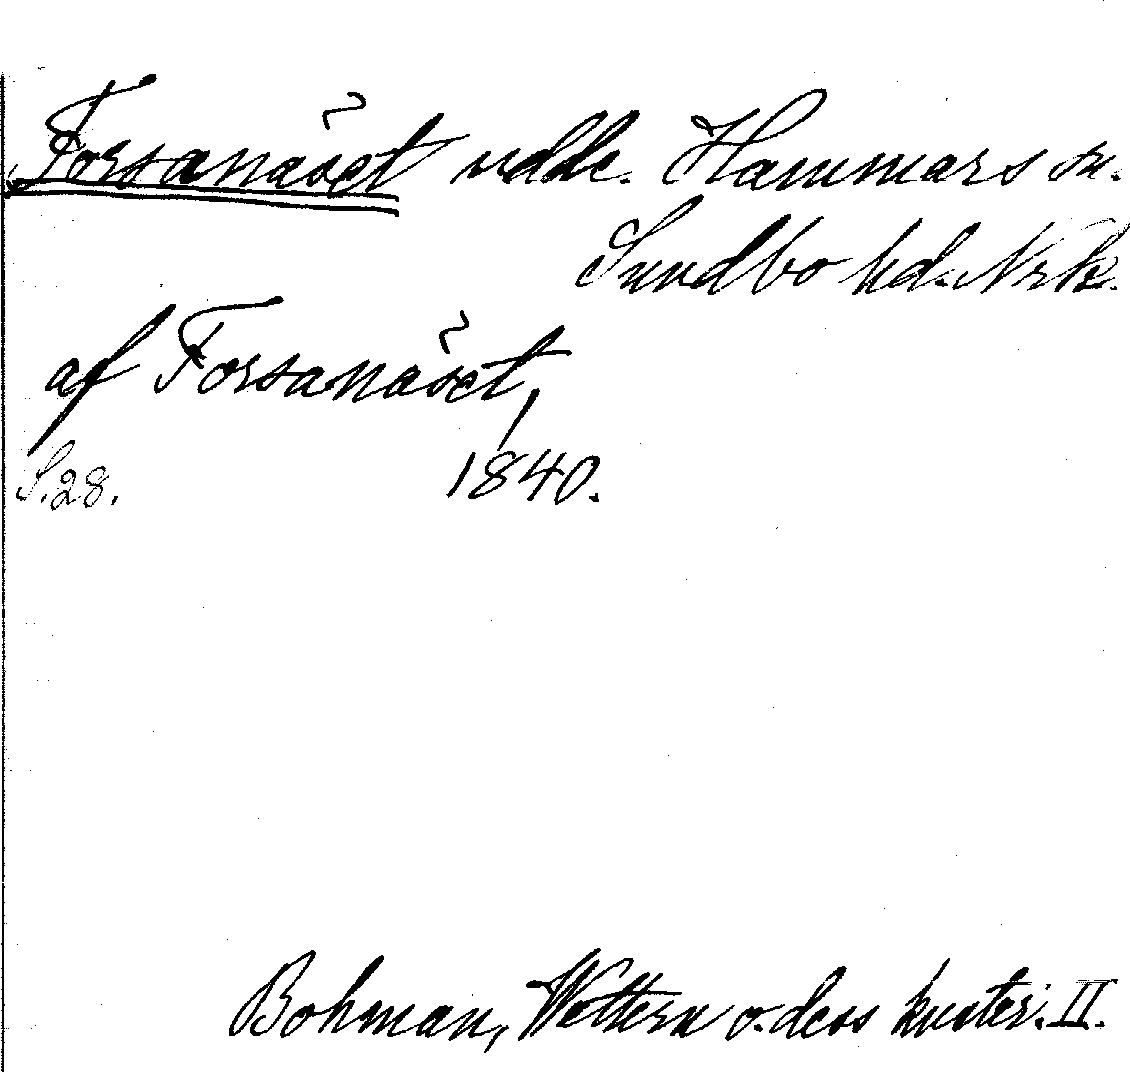 Forsanäset udde. Hammars sn.
Sundbo hd. Nrk.
af Forsanäset,
S. 28. 1840.
Bohman, Wettern o. dess kuster. II.